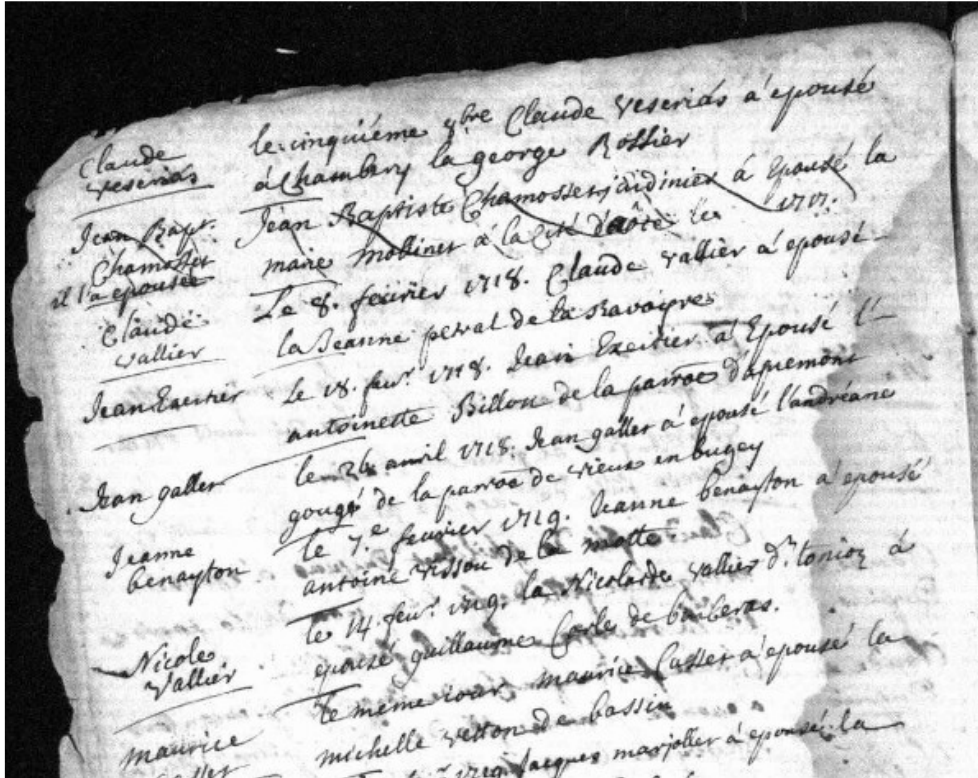 Claude
Veserias
le cinquiéme 9bre Claude Veserias á epousé
á Chambery la george Rossier
Jean Bapt.
Chamosset
il l'a epousée
Jean Baptiste Chamosset jardinier á Epousé la
marie mollinet á la Cité d'aôte le 1717.
Claude
Vallier
Le 8. feurier 1718. Claude Vallier á epousé
la Jeanne petral de la Ravoyre
Jean Exertier
Le 18. feur. 1718. Jean Exertier á Epousé l'
antoinette Billon de la parroe d'apremont
Jean galler
le 24 auril 1718. Jean galler á epousé l'andréane
de la parroe de vieux en bugey
Jeanne
benayton
le 7e feurier 1719. Jeanne benayton á epousé
antoine Vissou de la motte
Nicole
Vallier
le 14 feur. 1719. la Nicolarde Vallier dt tonioz á
epousé guillaume Carles de barberas.
maurice
Casset
le meme iour maurice Casset á epousé la
michelle Vetton de bassin
1719 Jacques marjollet á epousé la